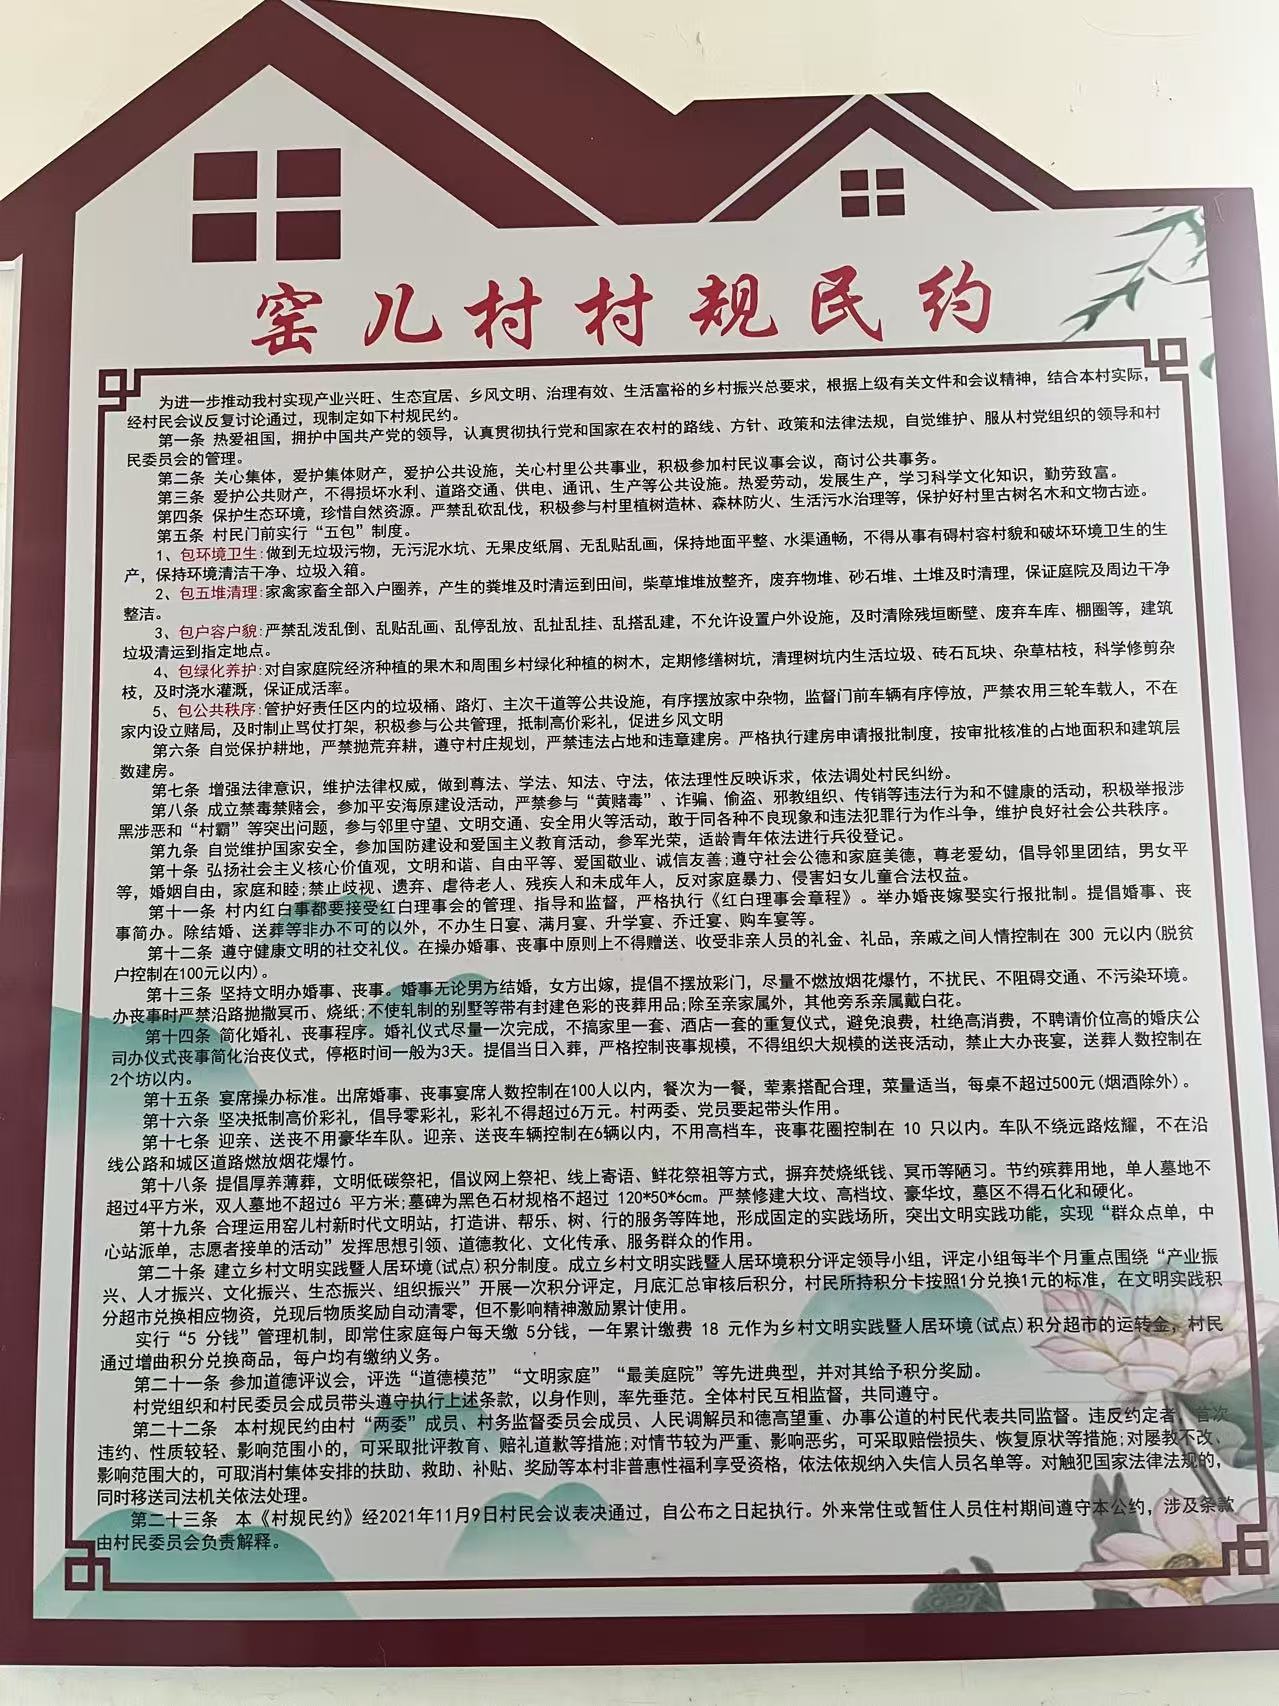 窑儿村村规民约
为进一步推动我村实现产业兴旺、生态宜居、乡风文明、治理有效、生活富裕的乡村振兴总要求，根据上级有关文件和会议精神，结合本村实际，
经村民会议反复讨论通过，现制定如下村规民约。
第一条 热爱祖国，拥护中国共产党的领导，认真贯彻执行党和国家在农村的路线、方针、政策和法律法规，自觉维护、服从村党组织的领导和村
民委员会的管理。
第二条 关心集体，爱护集体财产，爱护公共设施，关心村里公共事业，积极参加村民议事会议，商讨公共事务。
第三条 爱护公共财产，不得损坏水利、道路交通、供电、通讯、生产等公共设施。热爱劳动，发展生产，学习科学文化知识，勤劳致富。
第四条 保护生态环境，珍惜自然资源。严禁乱砍乱伐，积极参与村里植树造林、森林防火、生活污水治理等，保护好村里古树名木和文物古迹。
第五条 村民门前实行“五包”制度。
1、包环境卫生:做到无垃圾污物，无污泥水坑、无果皮纸屑、无乱贴乱画，保持地面平整、水渠通畅，不得从事有碍村容村貌和破坏环境卫生的生
产，保持环境清洁干净、垃圾入箱。
2、包五堆清理:家禽家畜全部入户圈养，产生的粪堆及时清运到田间，柴草堆堆放整齐，废弃物堆、砂石堆、土堆及时清理，保证庭院及周边干净
整洁。
3、包户容户貌:严禁乱泼乱倒、乱贴乱画、乱停乱放、乱扯乱挂、乱搭乱建，不允许设置户外设施，及时清除残垣断壁、废弃车库、棚圈等，建筑
垃圾清运到指定地点。
4、包绿化养护:对自家庭院经济种植的果木和周围乡村绿化种植的树木，定期修缮树坑，清理树坑内生活垃圾、砖石瓦块、杂草枯枝，科学修剪杂
枝，及时浇水灌溉，保证成活率。
5、包公共秩序:管护好责任区内的垃圾桶、路灯、主次干道等公共设施，有序摆放家中杂物，监督门前车辆有序停放，严禁农用三轮车载人，不在
家内设立赌局，及时制止骂仗打架，积极参与公共管理，抵制高价彩礼，促进乡风文明
第六条 自觉保护耕地，严禁抛荒弃耕，遵守村庄规划，严禁违法占地和违章建房。严格执行建房申请报批制度，按审批核准的占地面积和建筑层
数建房。
第七条 增强法律意识，维护法律权威，做到尊法、学法、知法、守法，依法理性反映诉求，依法调处村民纠纷。
第八条 成立禁毒禁赌会，参加平安海原建设活动，严禁参与“黄赌毒”、诈骗、偷盗、邪教组织、传销等违法行为和不健康的活动，积极举报涉
黑涉恶和“村霸”等突出问题，参与邻里守望、文明交通、安全用火等活动，敢于同各种不良现象和违法犯罪行为作斗争，维护良好社会公共秩序。
第九条 自觉维护国家安全，参加国防建设和爱国主义教育活动，参军光荣，适龄青年依法进行兵役登记。
第十条 弘扬社会主义核心价值观，文明和谐、自由平等、爱国敬业、诚信友善;遵守社会公德和家庭美德，尊老爱幼，倡导邻里团结，男女平
等，婚姻自由，家庭和睦;禁止歧视、遗弃、虐待老人、残疾人和未成年人，反对家庭暴力、侵害妇女儿童合法权益。
第十一条 村内红白事都要接受红白理事会的管理、指导和监督，严格执行《红白理事会章程》。举办婚丧嫁娶实行报批制。提倡婚事、丧
事简办。除结婚、送葬等非办不可的以外，不办生日宴、满月宴、升学宴、乔迁宴、购车宴等。
第十二条 遵守健康文明的社交礼仪。在操办婚事、丧事中原则上不得赠送、收受非亲人员的礼金、礼品，亲戚之间人情控制在 300 元以内(脱贫
户控制在100元以内)。
第十三条 坚持文明办婚事、丧事。婚事无论男方结婚，女方出嫁，提倡不摆放彩门，尽量不燃放烟花爆竹，不扰民、不阻碍交通、不污染环境。
办丧事时严禁沿路抛撒冥币、烧纸;不使轧制的别墅等带有封建色彩的丧葬用品;除至亲家属外，其他旁系亲属戴白花。
第十四条 简化婚礼、丧事程序。婚礼仪式尽量一次完成，不搞家里一套、酒店一套的重复仪式，避免浪费，杜绝高消费，不聘请价位高的婚庆公
司办仪式丧事简化治丧仪式，停柩时间一般为3天。提倡当日入葬，严格控制丧事规模，不得组织大规模的送丧活动，禁止大办丧宴，送葬人数控制在
2个坊以内。
第十五条 宴席操办标准。出席婚事、丧事宴席人数控制在100人以内，餐次为一餐，荤素搭配合理，菜量适当，每桌不超过500元(烟酒除外)。
第十六条 坚决抵制高价彩礼，倡导零彩礼，彩礼不得超过6万元。村两委、党员要起带头作用。
第十七条 迎亲、送丧不用豪华车队。迎亲、送丧车辆控制在6辆以内，不用高档车，丧事花圈控制在 10 只以内。车队不绕远路炫耀，不在沿
线公路和城区道路燃放烟花爆竹。
第十八条 提倡厚养薄葬，文明低碳祭祀，倡议网上祭祀、线上寄语、鲜花祭祖等方式，摒弃焚烧纸钱、冥币等陋习。节约殡葬用地，单人墓地不
超过4平方米，双人墓地不超过6 平方米;墓碑为黑色石材规格不超过 120*50*6cm。严禁修建大坟、高档坟、豪华坟，墓区不得石化和硬化。
第十九条 合理运用窑儿村新时代文明站，打造讲、帮乐、树、行的服务等阵地，形成固定的实践场所，突出文明实践功能，实现“群众点单，中
心站派单，志愿者接单的活动”发挥思想引领、道德教化、文化传承、服务群众的作用。
第二十条 建立乡村文明实践暨人居环境(试点)积分制度。成立乡村文明实践暨人居环境积分评定领导小组，评定小组每半个月重点围绕“产业振
兴、人才振兴、文化振兴、生态振兴、组织振兴”开展一次积分评定，月底汇总审核后积分，村民所持积分卡按照1分兑换1元的标准，在文明实践积
分超市兑换相应物资，兑现后物质奖励自动清零，但不影响精神激励累计使用。
实行“5 分钱”管理机制，即常住家庭每户每天缴 5分钱，一年累计缴费 18 元作为乡村文明实践暨人居环境(试点)积分超市的运转金，村民
通过增曲积分兑换商品，每户均有缴纳义务。
第二十一条 参加道德评议会，评选“道德模范”“文明家庭”“最美庭院”等先进典型，并对其给予积分奖励。
村党组织和村民委员会成员带头遵守执行上述条款，以身作则，率先垂范。全体村民互相监督，共同遵守。
第二十二条 本村规民约由村“两委”成员、村务监督委员会成员、人民调解员和德高望重、办事公道的村民代表共同监督。违反约定者，首次
违约、性质较轻、影响范围小的，可采取批评教育、赔礼道歉等措施;对情节较为严重、影响恶劣，可采取赔偿损失、恢复原状等措施;对屡教不改、
影响范围大的，可取消村集体安排的扶助、救助、补贴、奖励等本村非普惠性福利享受资格，依法依规纳入失信人员名单等。对触犯国家法律法规的，
同时移送司法机关依法处理。
第二十三条 本《村规民约》经2021年11月9日村民会议表决通过，自公布之日起执行。外来常住或暂住人员住村期间遵守本公约，涉及条款
由村民委员会负责解释。